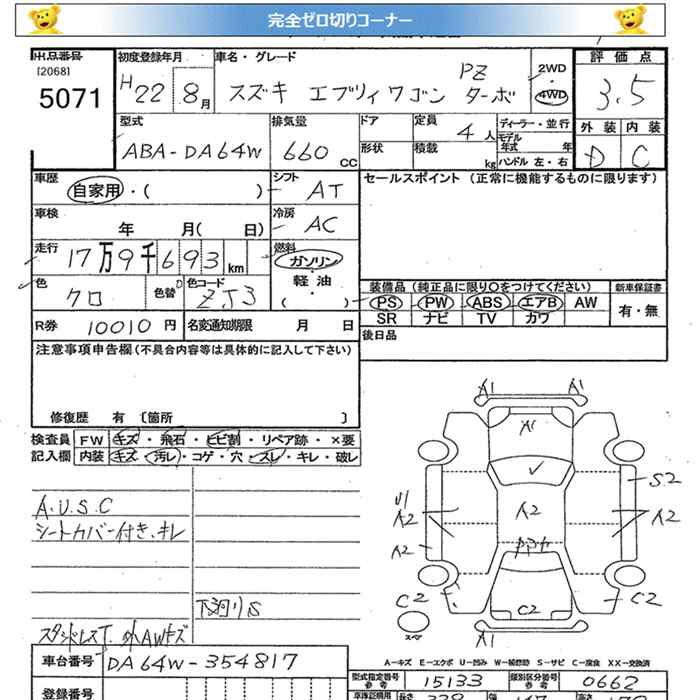 完全ゼロ切りコーナー
出品番号 初度登録年月 車名・グレード 2WD 評価点
[2068] PZ
5071 H22 8月 スズキ エブリィワゴン ターボ 4WD 3.5
型式 排気量 ドア 定員 4人 ディーラー・並行 外装 内装
モデル年式 年
ABA-DA64W 660cc 形状 積載 kg ハンドル 左・右 D C
車歴 シフト セールスポイント(正常に機能するものに限ります)
自家用・( ) AT
車検 冷房
年 月( 日) AC
走行 17万9千693km 燃料
ガソリン
色 色替 色コード 軽油 装備品(純正品に限り○をつけてください) 新車保証書
クロ ZJ3 ( ) PS PW ABS エアB AW 有・無
SR ナビ TV カワ
R券 10010円 名変通知期限 月 日 後日品
注意事項申告欄(不具合内容等は具体的に記入して下さい)
修復歴 有 〔箇所 〕
検査員 FW キズ・飛石・ヒビ割・リペア跡・×要
記入欄 内装 キズ・汚レ・コゲ・穴・スレ・キレ・破レ
A1 A1
A1
S2
A.U.S.C
シートカバー付き、キレ
U1
A2 A2 A2
A2
下廻りS C2 C2 C2
スペア
スタッドレスT. 外AWキズ A1
車台番号 DA64W-354817 A-キズ E-エクボ U-凹み W-補修跡 S-サビ C-腐食 XX-交換済
型式指定番号 参考 15133 類別区分番号 参考 0662
登録番号